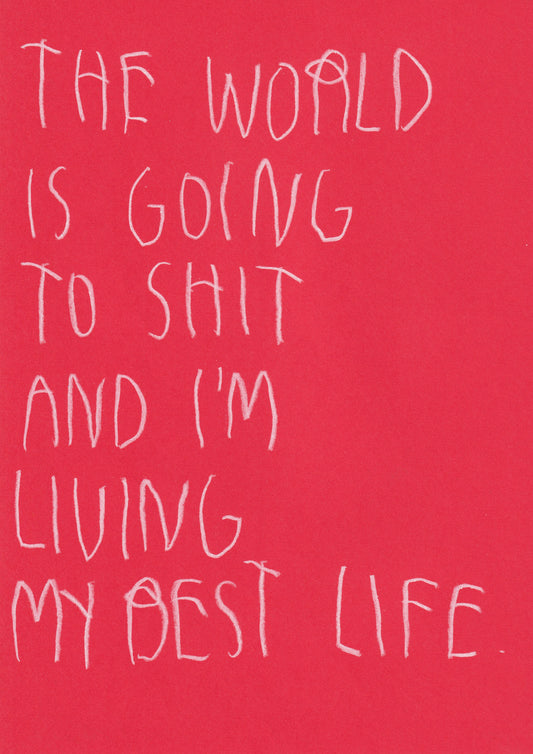 THE WORLD
IS GOING
TO SHIT
AND I'M
LIVING
MY BEST LIFE.